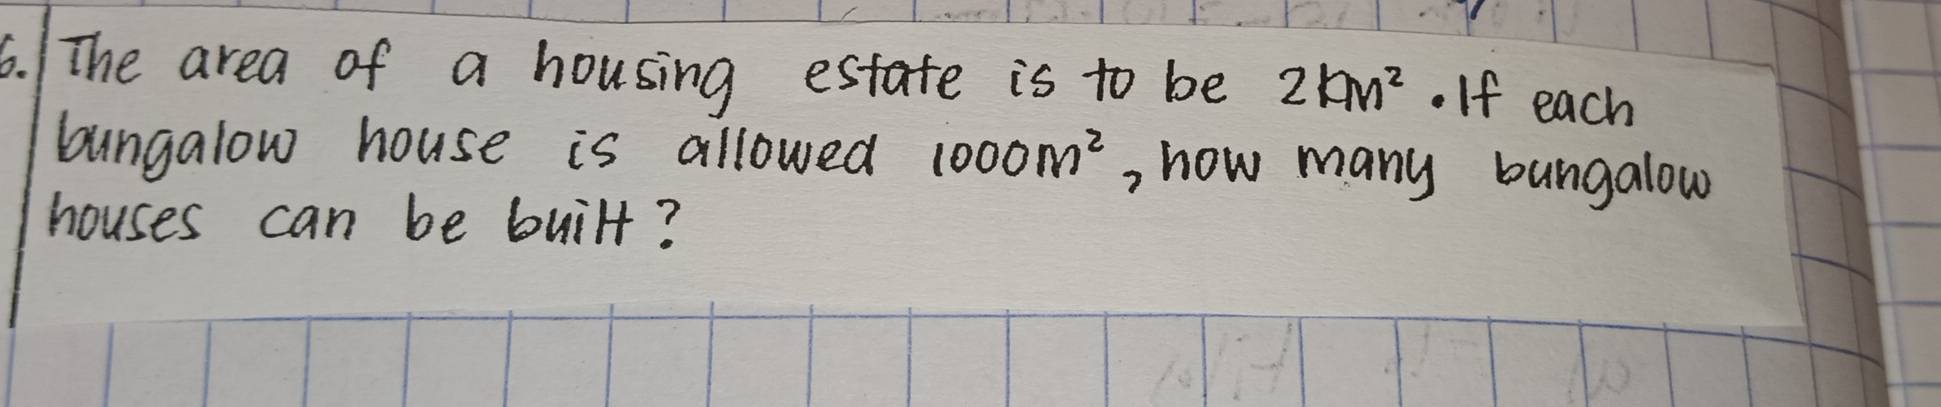 6. The area of a housing estate is to be 2km². If each
bungalow house is allowed 1000m², how many bungalow
houses can be built?